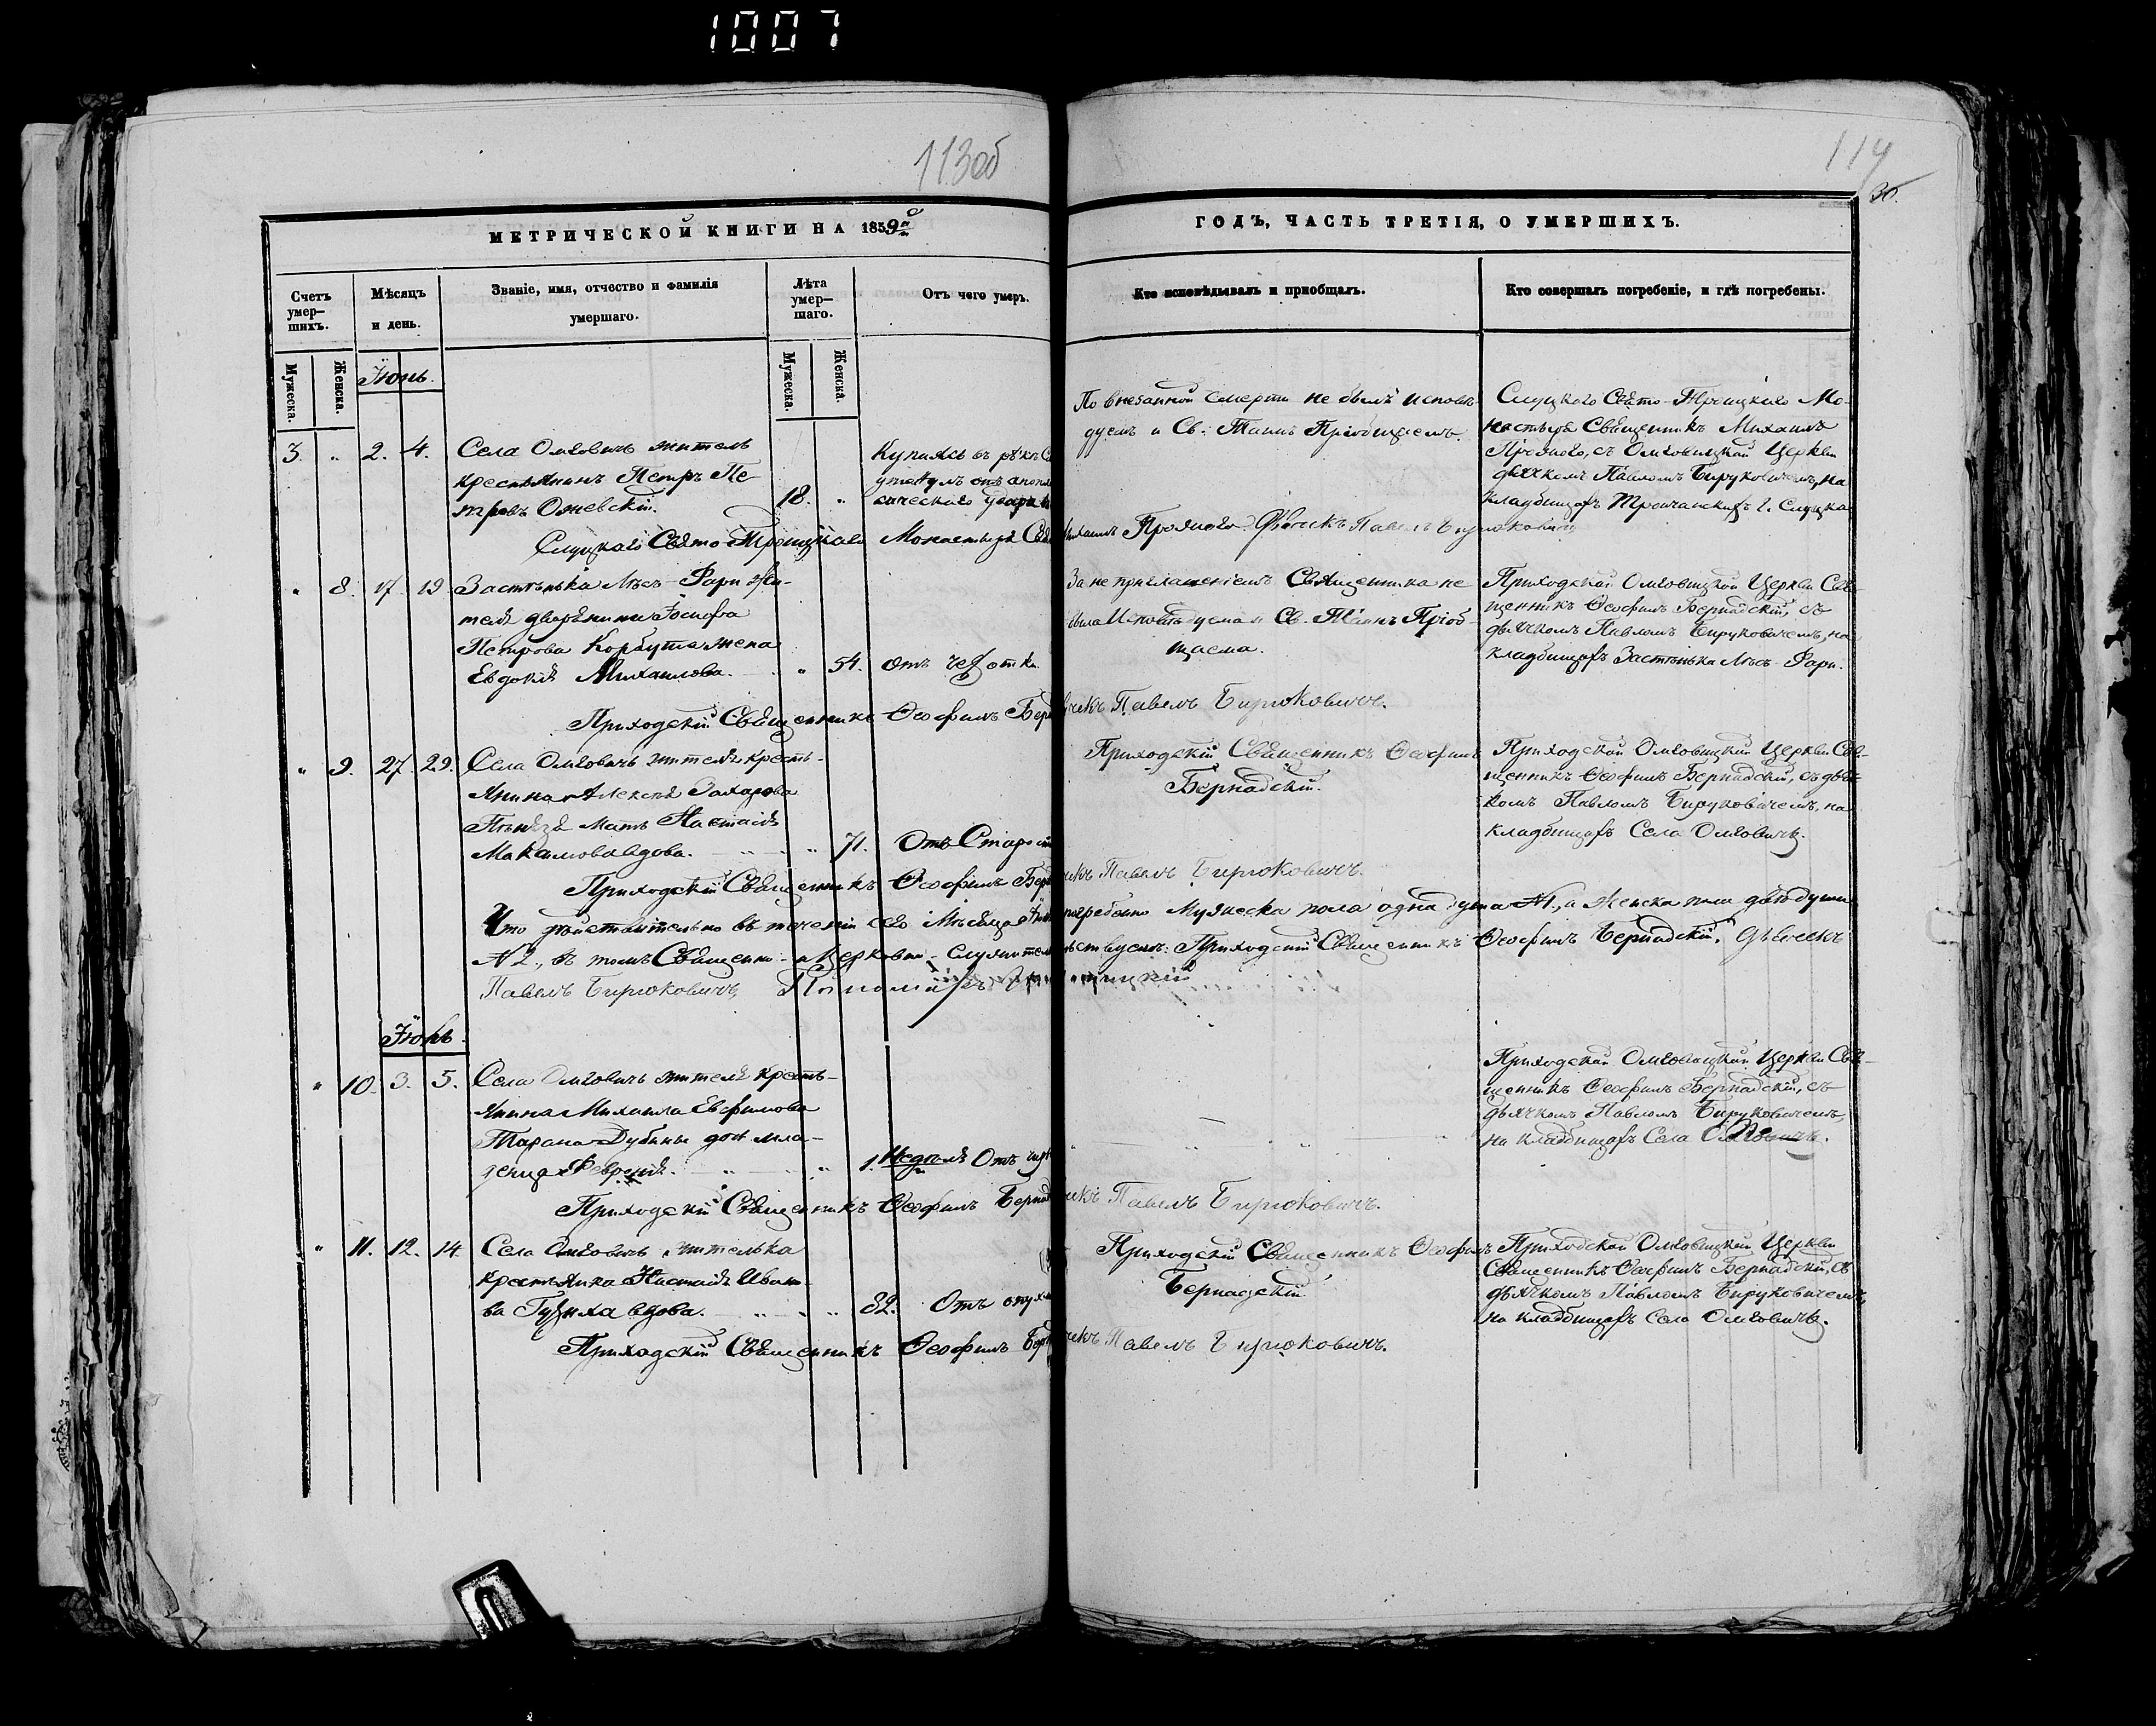 1007
113об
114
30.
МЕТРИЧЕСКОЙ КНИГИ НА 1859й
ГОДЪ, ЧАСТЬ ТРЕТІЯ, О УМЕРШИХЪ.
Счетъ умер-шихъ.
Мѣсяцъ и день.
Званіе, имя, отчество и фамилія умершаго.
Лѣта умер-шаго.
Отъ чего умеръ.
Кто исповѣдывалъ и пріобщалъ.
Кто совершалъ погребеніе, и гдѣ погребены.
Мужеска.
Женска.
Мужеска.
Женска.
Іюнь.
3. " 2. 4. Села Омговичъ житель
крестьянинъ Петръ Пе-
тровъ
18. "
Купаясь въ рѣкѣ
утонулъ отъ
По внезапной смерти не былъ исповѣ-
дуемъ и Св: Таинъ Пріобщаемъ.
Слуцкого Свято-Троицкаго Мо-
настыря Священникъ Михаилъ
съ Омговицкой Церкви
дьячкомъ Павломъ Бируковичемъ, на
кладбищахъ Тройчанскихъ г. Слуцка
Слуцкаго Свято Троицкаго Монастыря
Дьячекъ Павелъ Бирюковичъ
" 8. 17. 19 Застѣнька Лѣсъ-Фари жи-
теля дворянина Іосифа
Петрова Корбута жена
Евдокія Михаилова.
" 54. отъ чахотки.
За не приглашеніемъ Священника не
была Исповѣдуема и Св. Таинъ Пріоб-
щаема.
Приходской Омговицкой Церкви Свя-
щенникъ Ѳеофилъ Бернадскій, съ
дьячкомъ Павломъ Бируковичемъ, на
кладбищахъ Застѣнька Лѣсъ-Фари.
Приходскій Священникъ Ѳеофилъ
Павелъ Бирюковичъ.
" 9. 27. 29. Села Омговичъ жителя кресть-
янина Алексѣя Захарова
мать Настасія
Максимова вдова.
" 71. Отъ
Приходскій Священникъ Ѳеофилъ
Бернадскій.
Приходской Омговицкой Церкви Свя-
щенникъ Ѳеофилъ Бернадскій, съ дьяч-
комъ Павломъ Бируковичемъ, на
кладбищахъ Села Омговичъ.
Приходскій Священникъ Ѳеофилъ
Павелъ Бирюковичъ.
Что дѣйствительно въ теченіи сего Мѣсяца погребенно Мужеска пола одна душа №1., а Женска пола двѣ души
№2., въ томъ Священно- и Церковно-служители Приходскій Священникъ Ѳеофилъ Бернадскій. Дьячекъ
Павелъ Бирюковичъ, Пономарь
Іюль.
" 10. 3. 5. Села Омговичъ жителя кресть-
янина Михаила Евфимова
Тарана-Дубины дочь мла-
денца Февронія.
" 1. Недѣля Отъ
Приходской Омговицкой Церкви Свя-
щенникъ Ѳеофилъ Бернадскій, съ
дьячкомъ Павломъ Бируковичемъ,
на кладбищахъ Села Омговичъ.
Приходскій Священникъ Ѳеофилъ
Павелъ Бирюковичъ.
" 11. 12. 14. Села Омговичъ жителька
крестьянка Настасія Ивано-
ва вдова.
" 82. Отъ
Приходскій Священникъ Ѳеофилъ
Бернадскій
Приходской Омговицкой Церкви
Священникъ Ѳеофилъ Бернадскій, съ
дьячкомъ Павломъ Бируковичемъ,
на кладбищахъ Села Омговичъ.
Приходскій Священникъ Ѳеофилъ
Павелъ Бирюковичъ.